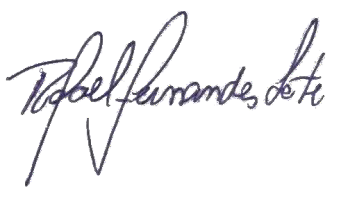 Rafael Fernandes Leite